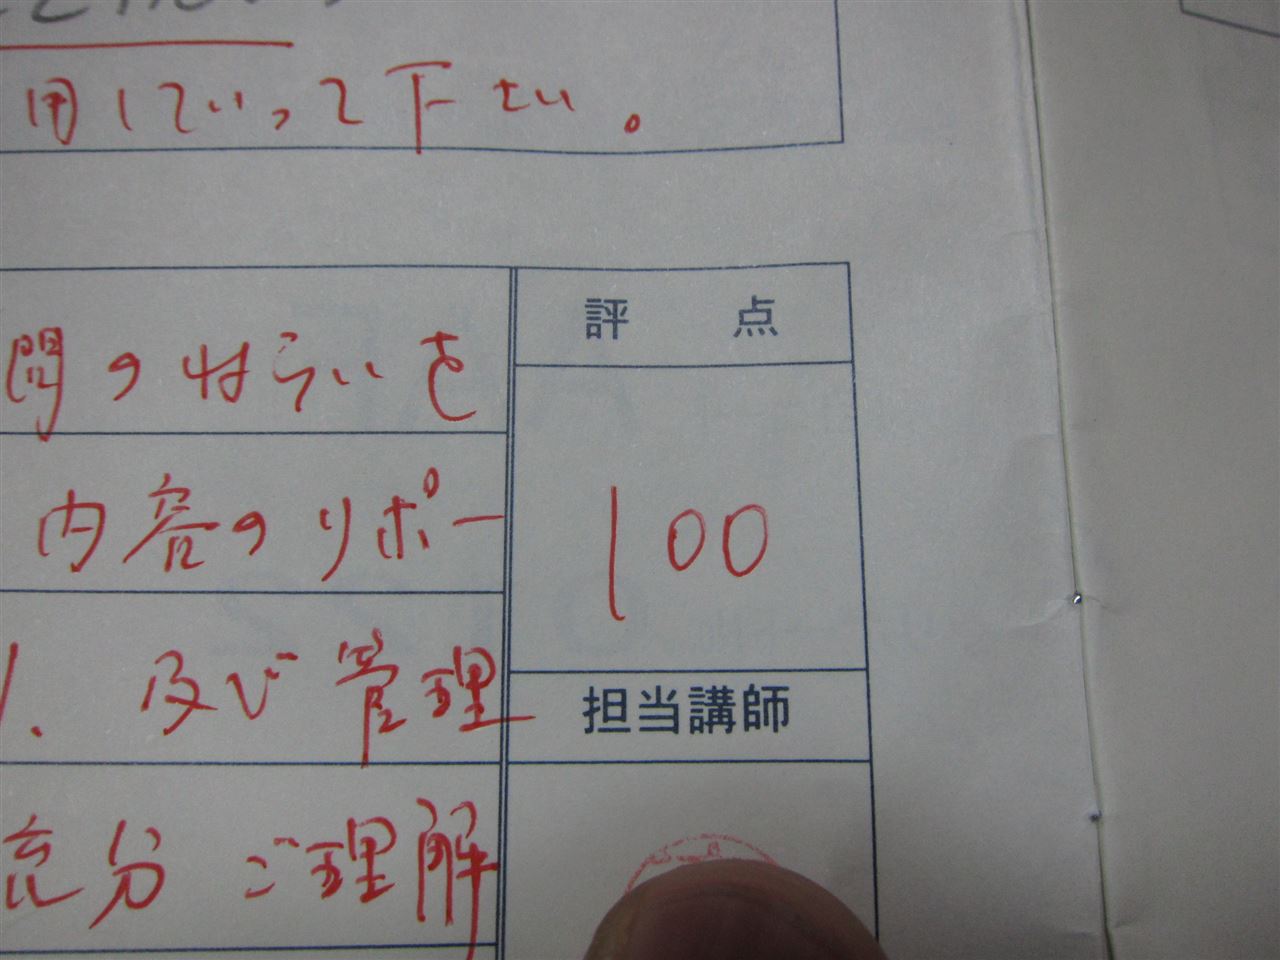 用していって下さい。
評 点
問のねらいを
100
内容のリポー
及び管理
担当講師
充分ご理解